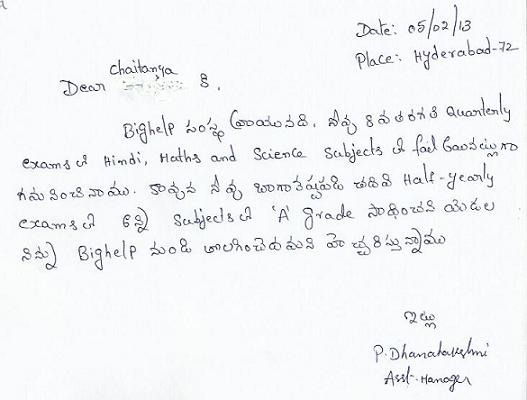 Date: 05/02/13
Place: Hyderabad-72
Chaitanya
Dear కి,
Bighelp సంస్థ వ్రాయునది. నీవు 8 వ తరగతి Quarterly
exams లో Hindi, Maths and Science Subjects లో fail అయినట్లుగా
గమనించినాము. కావున నీవు బాగా కష్టపడి చదివి Half-yearly
exams లో అన్ని Subjects లో 'A' grade సాధించని యెడల
నిన్ను Bighelp నుండి తొలగించెదమని హెచ్చరిస్తున్నాము
ఇట్లు
P. Dhanalakshmi
Asst. Manager